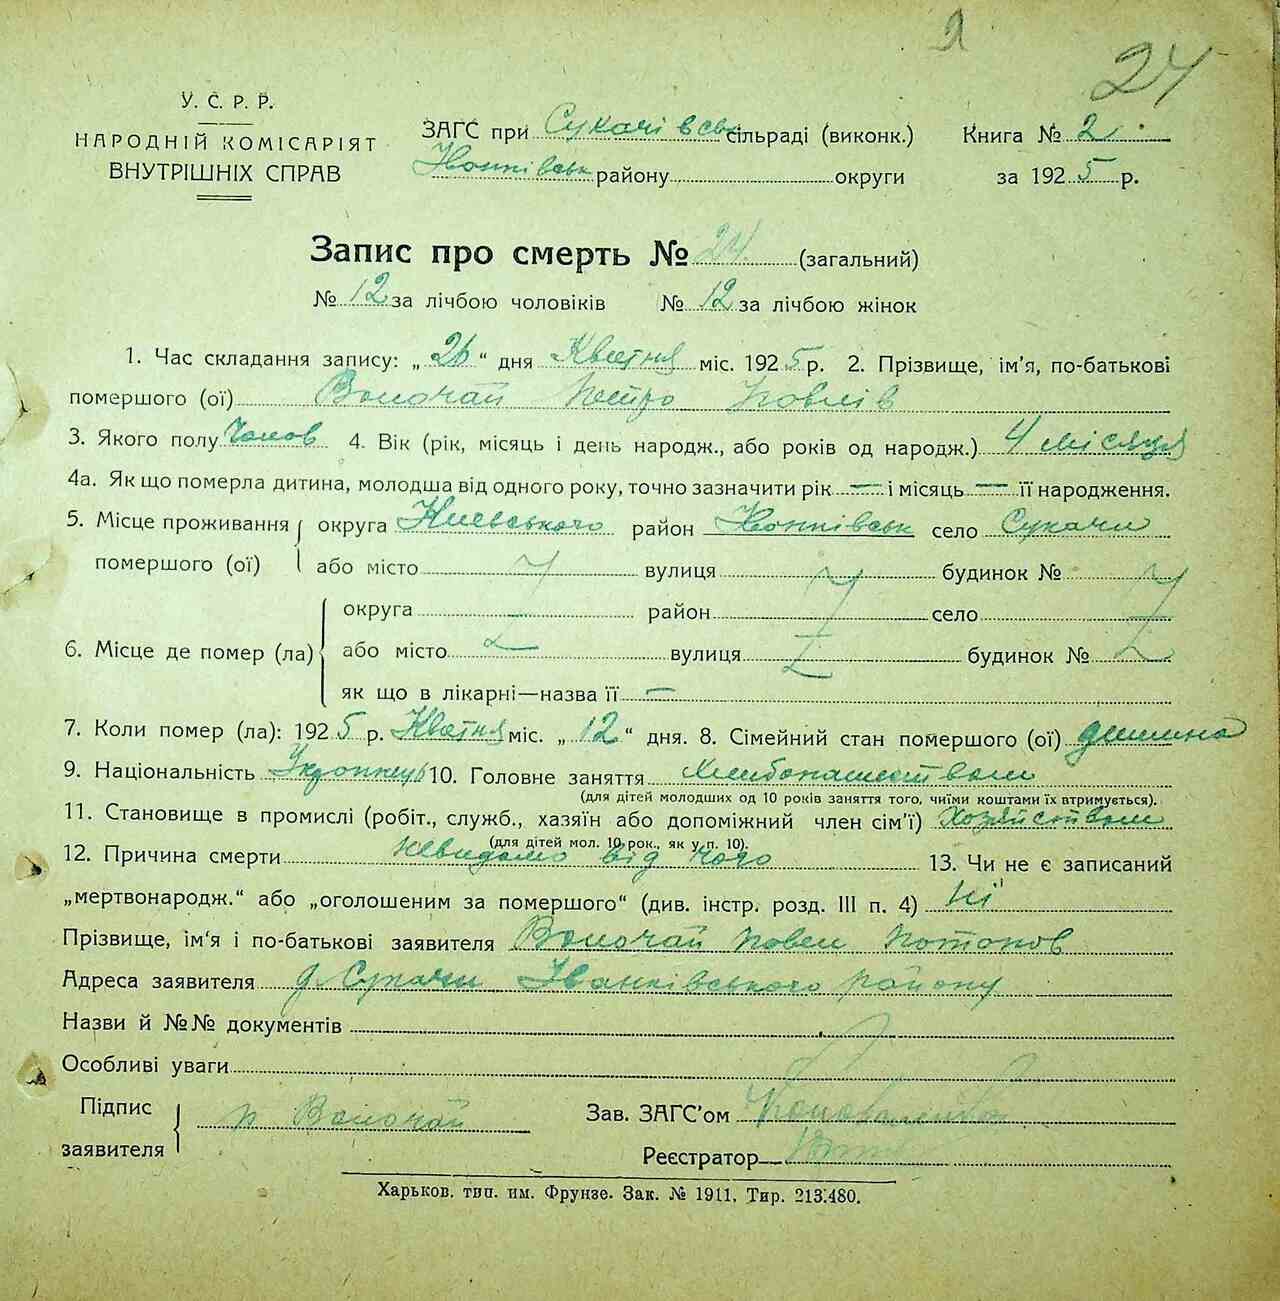 24
У. С. Р. Р.
НАРОДНІЙ КОМІСАРІЯТ
ВНУТРІШНІХ СПРАВ
ЗАГС при Сукачівськ сільраді (виконк.)
районy округи
Книга № 2
за 1925 р.
Запис про смерть № 24 (загальний)
№ 12 за лічбою чоловіків № 12 за лічбою жінок
1. Час складання запису: „26“ дня Квітня міс. 1925 р. 2. Прізвище, ім'я, по-батькові
помершого (ої) Волочай Петро Повлів
3. Якого полу Чолов 4. Вік (рік, місяць і день народж., або років од народж.) 4 місяця
4а. Як що померла дитина, молодша від одного року, точно зазначити рік — і місяць — її народження.
5. Місце проживання помершого (ої) округа Киевського район село Сукачи
або місто вулиця будинок №
6. Місце де помер (ла) округа район село
або місто вулиця будинок №
як що в лікарні—назва її —
7. Коли помер (ла): 1925 р. Квітня міс. „12“ дня. 8. Сімейний стан помершого (ої) дитина
9. Національність 10. Головне заняття Хлибопашеством
(для дітей молодших од 10 років заняття того, чиїми коштами їх втримується).
11. Становище в промислі (робіт., служб., хазяїн або допоміжний член сім'ї) Хозяйством
(для дітей мол. 10 рок., як у п. 10).
12. Причина смерти невидомо від чого 13. Чи не є записаний
„мертвонародж.“ або „оголошеним за помершого“ (див. інстр. розд. III п. 4) Ні
Прізвище, ім'я і по-батькові заявителя Волочай Повел Потапов
Адреса заявителя д. Сукачи Іванківського району
Назви й №№ документів
Особливі уваги
Підпис заявителя п Волочай
Зав. ЗАГС'ом Коноваленко
Реєстратор
Харьков. тип. им. Фрунзе. Зак. № 1911. Тир. 213.480.